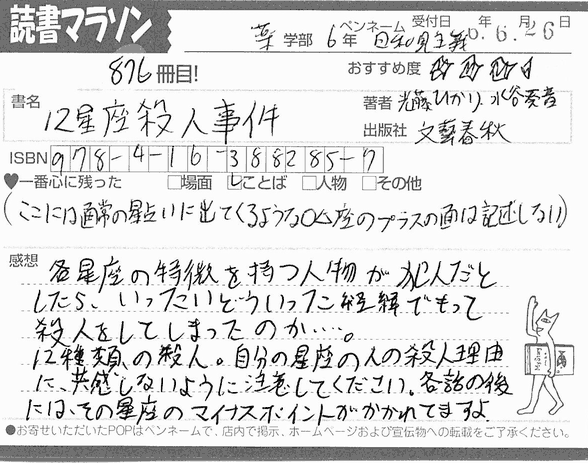 読書マラソン
薬 学部 6年 ペンネーム 日和見主義 受付日 6年 6月 26日
876冊目!
おすすめ度 ☆☆☆☆
書名 12星座殺人事件
著者 光藤ひかり、水谷奏音
出版社 文藝春秋
ISBN 978-4-16-388285-7
♥一番心に残った □場面 ☑ことば □人物 □その他
(ここには通常の星占いに出てくるような○△座のプラスの面は記述しない)
感想 各星座の特徴を持つ人物が犯人だと
したら、いったいどういった経緯でもって
殺人をしてしまったのか…。
12種類の殺人。自分の星座の人の殺人理由
に、共感しないように注意してください。各話の後
には、その星座のマイナスポイントがかかれてますよ
●お寄せいただいたPOPはペンネームで、店内で掲示、ホームページおよび宣伝物への転載をご了承ください。